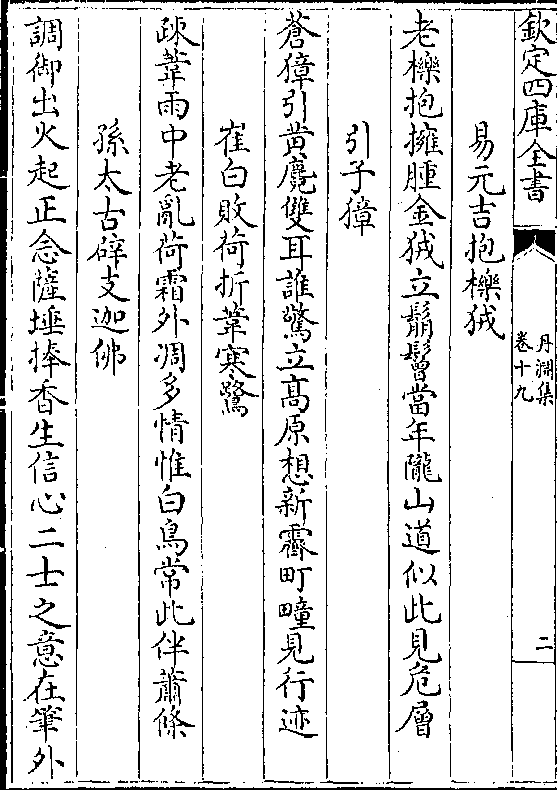 欽定四庫全書
丹淵集
卷十九
二
易元吉抱櫟狨
老櫟抱擁腫金狨立鬅鬙當年隴山道似此見危層
引子獐
蒼獐引黄麂雙耳誰驚立髙原想新霽町疃見行迹
崔白敗荷折葦寒鷺
疎葦雨中老亂荷霜外凋多情惟白鳥常此伴蕭條
孫太古辟支迦佛
調御出火起正念薩埵捧香生信心二士之意在筆外